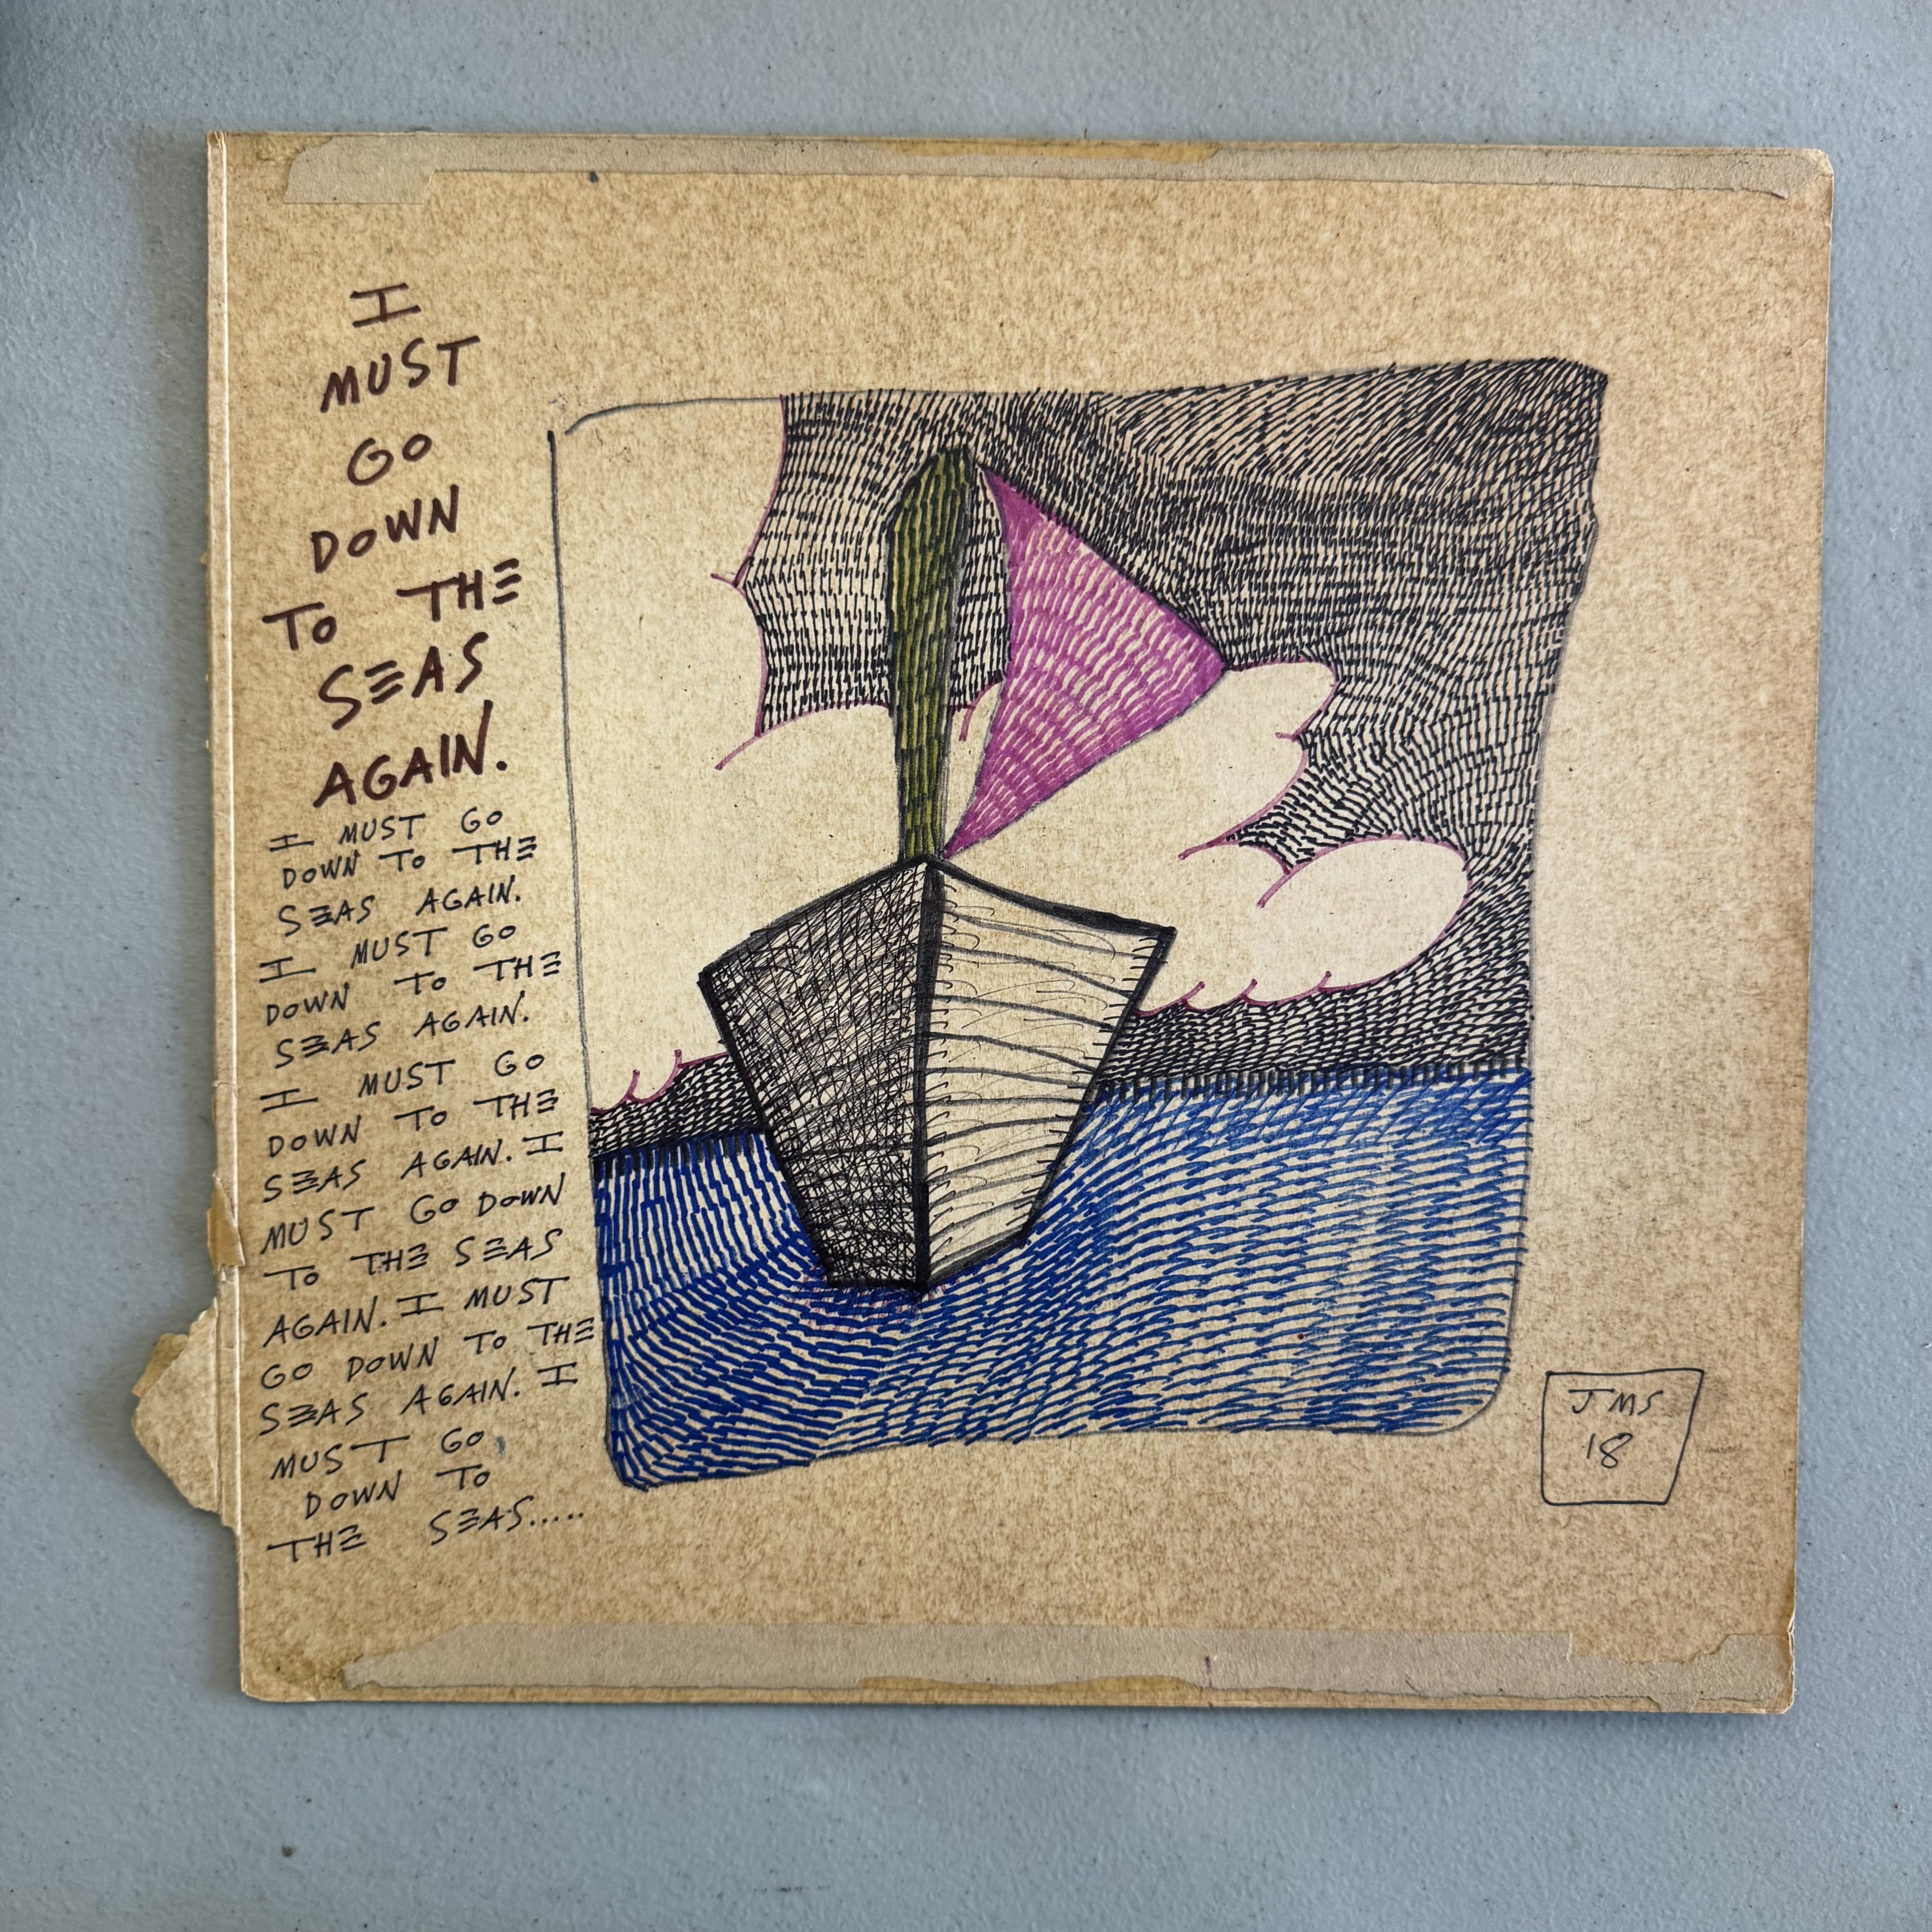 I
MUST
GO
DOWN
TO THE
SEAS
AGAIN.
I MUST GO
DOWN TO THE
SEAS AGAIN.
I MUST GO
DOWN TO THE
SEAS AGAIN.
I MUST GO
DOWN TO THE
SEAS AGAIN. I
MUST GO DOWN
TO THE SEAS
AGAIN. I MUST
GO DOWN TO THE
SEAS AGAIN. I
MUST GO
DOWN TO
THE SEAS.....
JMS
18